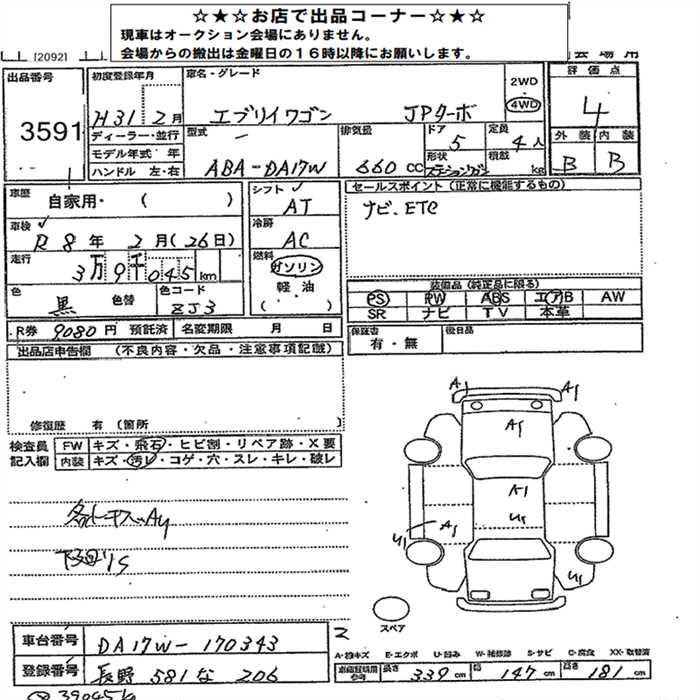 ★☆★お店で出品コーナー★☆★
現車はオークション会場にありません。
会場からの搬出は金曜日の16時以降にお願いします。
[2092]
出品番号
3591
初度登録年月
H31 2月
ディーラー・並行
モデル年式 年
ハンドル 左・右
車名・グレード
エブリイワゴン JPターボ
2WD
4WD
型式
ABA-DA17W
排気量
660cc
ドア
5
定員
4人
形状
ステーションワゴン
積載
kg
評価点
4
外装 内装
B B
車歴
自家用・( )
車検
R8年2月(26日)
走行
3万9千045km
色
黒 色替
色コード
ZJ3
シフト
AT
冷房
AC
燃料
ガソリン
軽・油
( )
セールスポイント(正常に機能するもの)
ナビ、ETC
装備品(純正品に限る)
PS PW ABS エアB AW
SR ナビ TV 本革
R券 9080円 預託済 名変期限 月 日
保証書
有・無
後日品
出品店申告欄 (不良内容・欠品・注意事項記載)
修復歴 有(箇所 )
検査員
記入欄
FW キズ・飛石・ヒビ割・リペア跡・X要
内装 キズ・汚レ・コゲ・穴・スレ・キレ・破レ
下回りS
A1
A1
A1
A1
U1
A1
U1
U1
スペア
車台番号 DA17W-170343
登録番号 長野 581 な 206
2
A-線キズ E-エクボ U-凹み W-補修跡 S-サビ C-腐食 XX-取替済
長さ 339cm 幅 147cm 高さ 181cm